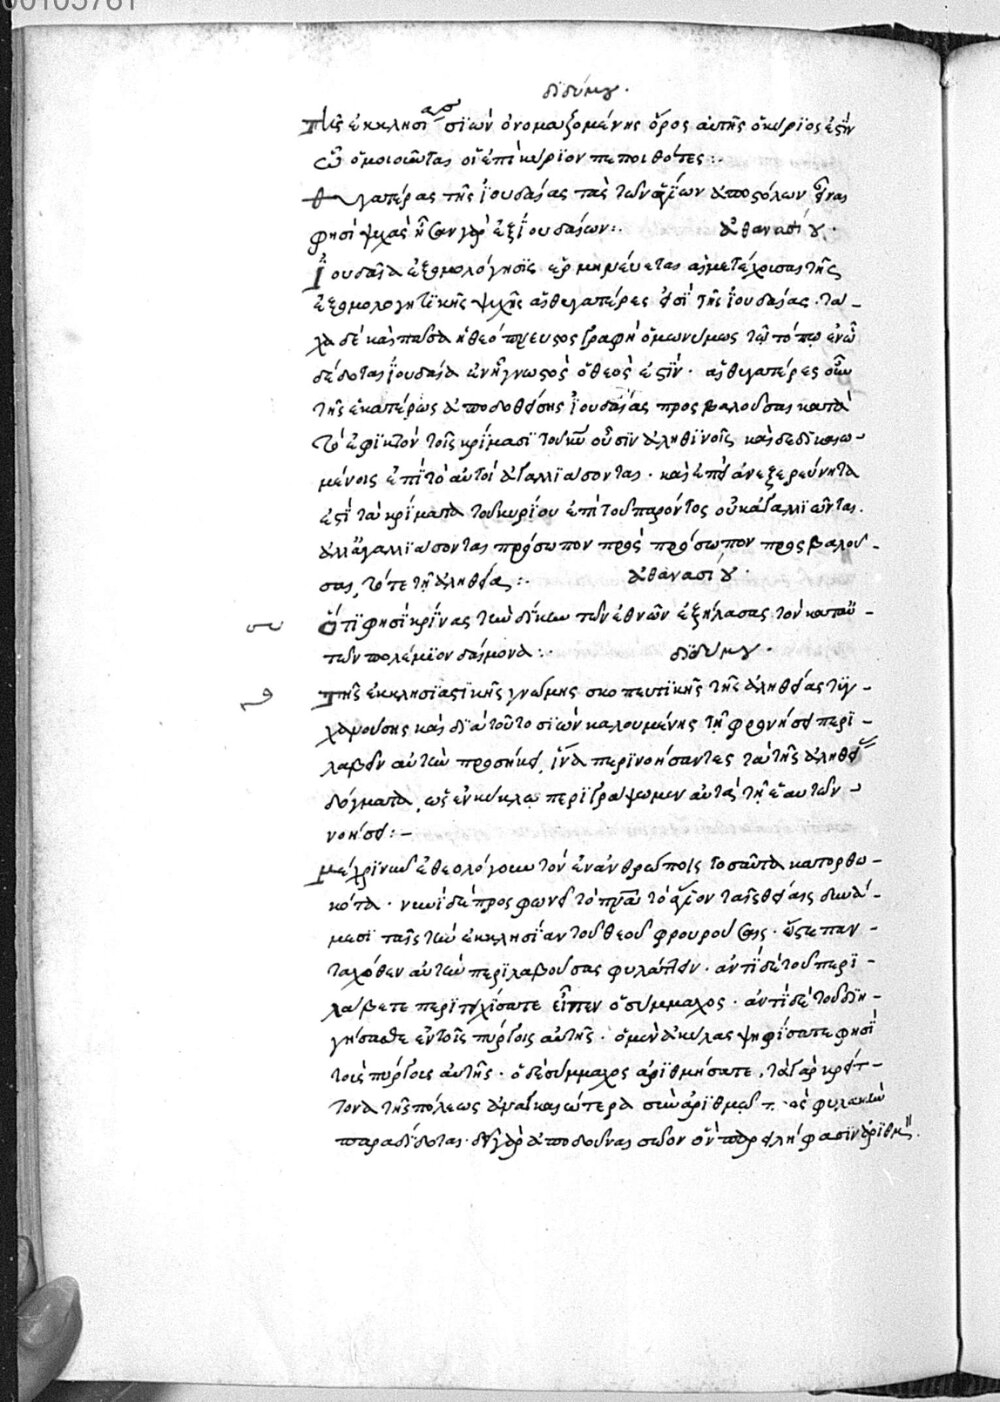 00105761
διδύμου.
Τῆς ἐκκλησίας σιὼν ὀνομαζομένης ὄρος αὐτῆς ὁ κύριός ἐστιν
ᾧ ὁμοιοῦται οἱ ἐπὶ κύριον πεποιθότες:
θυγατέρας τῆς ἰουδαίας τὰς τῶν ἁγίων ἀποστόλων εἶναι
φησὶ ψυχάς· ἦσαν γὰρ ἐξ ἰουδαίων:. ἀθανασίου.
Ἰουδαία ἐξομολόγησις ἑρμηνεύεται αἱ μετέχουσαι τῆς
ἐξομολογητικῆς ψυχῆς αἱ θυγατέρες εἰσὶ τῆς ἰουδαίας. τά-
χα δὲ καὶ πᾶσα ἡ θεόπνευστος γραφὴ ὁμωνύμως τῷ τόπῳ ἐν ᾧ
δέδοται ἰουδαία ἐν ᾗ γνωστὸς ὁ θεός ἐστιν. αἱ θυγατέρες οὖν
τῆς ἑκατέρως ἀποδοθείσης ἰουδαίας προσβαλοῦσαι κατὰ
τὸ ἐφικτὸν τοῖς κρίμασι τοῦ κυ οὖσιν ἀληθινοῖς καὶ δεδικαιω-
μένοις ἐπὶ τὸ αὐτὸ ἀγαλλιάσονται. καὶ ἐπεὶ ἀνεξερεύνητα
ἐστὶ τὰ κρίματα τοῦ κυρίου ἐπὶ τοῦ παρόντος οὐκ ἀγαλλιῶνται.
ἀλλ' ἀγαλλιάσονται πρόσωπον πρὸς πρόσωπον προσβαλοῦ-
σαι, τότε τῇ ἀληθείᾳ:. ἀθανασίου.
Ὅτι φησὶ κρίνας τὴν δίκην τῶν ἐθνῶν ἐξήλασας τὸν κατ' αὐ-
τῶν πολέμιον δαίμονα:. διδύμου.
Τῆς ἐκκλησιαστικῆς γνώμης σκοπευτικῆς τῆς ἀληθείας τυγ-
χανούσης καὶ διὰ τοῦτο σιὼν καλουμένης τῇ φρονήσει περι-
λαβεῖν αὐτὴν προσήκει, ἵνα περινοήσαντες τὰ τῆς ἀληθείας
δόγματα, ὡς ἐν κύκλῳ περιγράψωμεν αὐτὰ τῇ ἑαυτῶν
νοήσει:-
μέχρι νῦν ἐθεολόγουν τὸν ἐν ἀνθρώποις τοσαῦτα κατορθω-
κότα. νυνὶ δὲ προσφωνεῖ τὸ πνα τὸ ἅγιον ταῖς θείαις δυνά-
μεσι ταῖς τὴν ἐκκλησίαν τοῦ θεοῦ φρουρούσαις. ὥστε παν-
ταχόθεν αὐτὴν περιλαβούσας φυλάττειν. ἀντὶ δὲ τοῦ περι-
λάβετε περιτειχίσατε εἶπεν ὁ σύμμαχος. ἀντὶ δὲ τοῦ διη-
γήσασθε ἐν τοῖς πύργοις αὐτῆς. ὁ μὲν ἀκύλας ψηφίσατε φησὶ
τοὺς πύργους αὐτῆς. ὁ δὲ σύμμαχος ἀριθμήσατε. τὰ γὰρ κρείτ-
τονα τῆς πόλεως ἀναγκαιότερα σὺν ἀριθμῷ φυλακὴν
παραδίδοται. δεῖ γὰρ ἀποδοῦναι σῶον ὃν παρειλήφασιν ἀριθμόν.